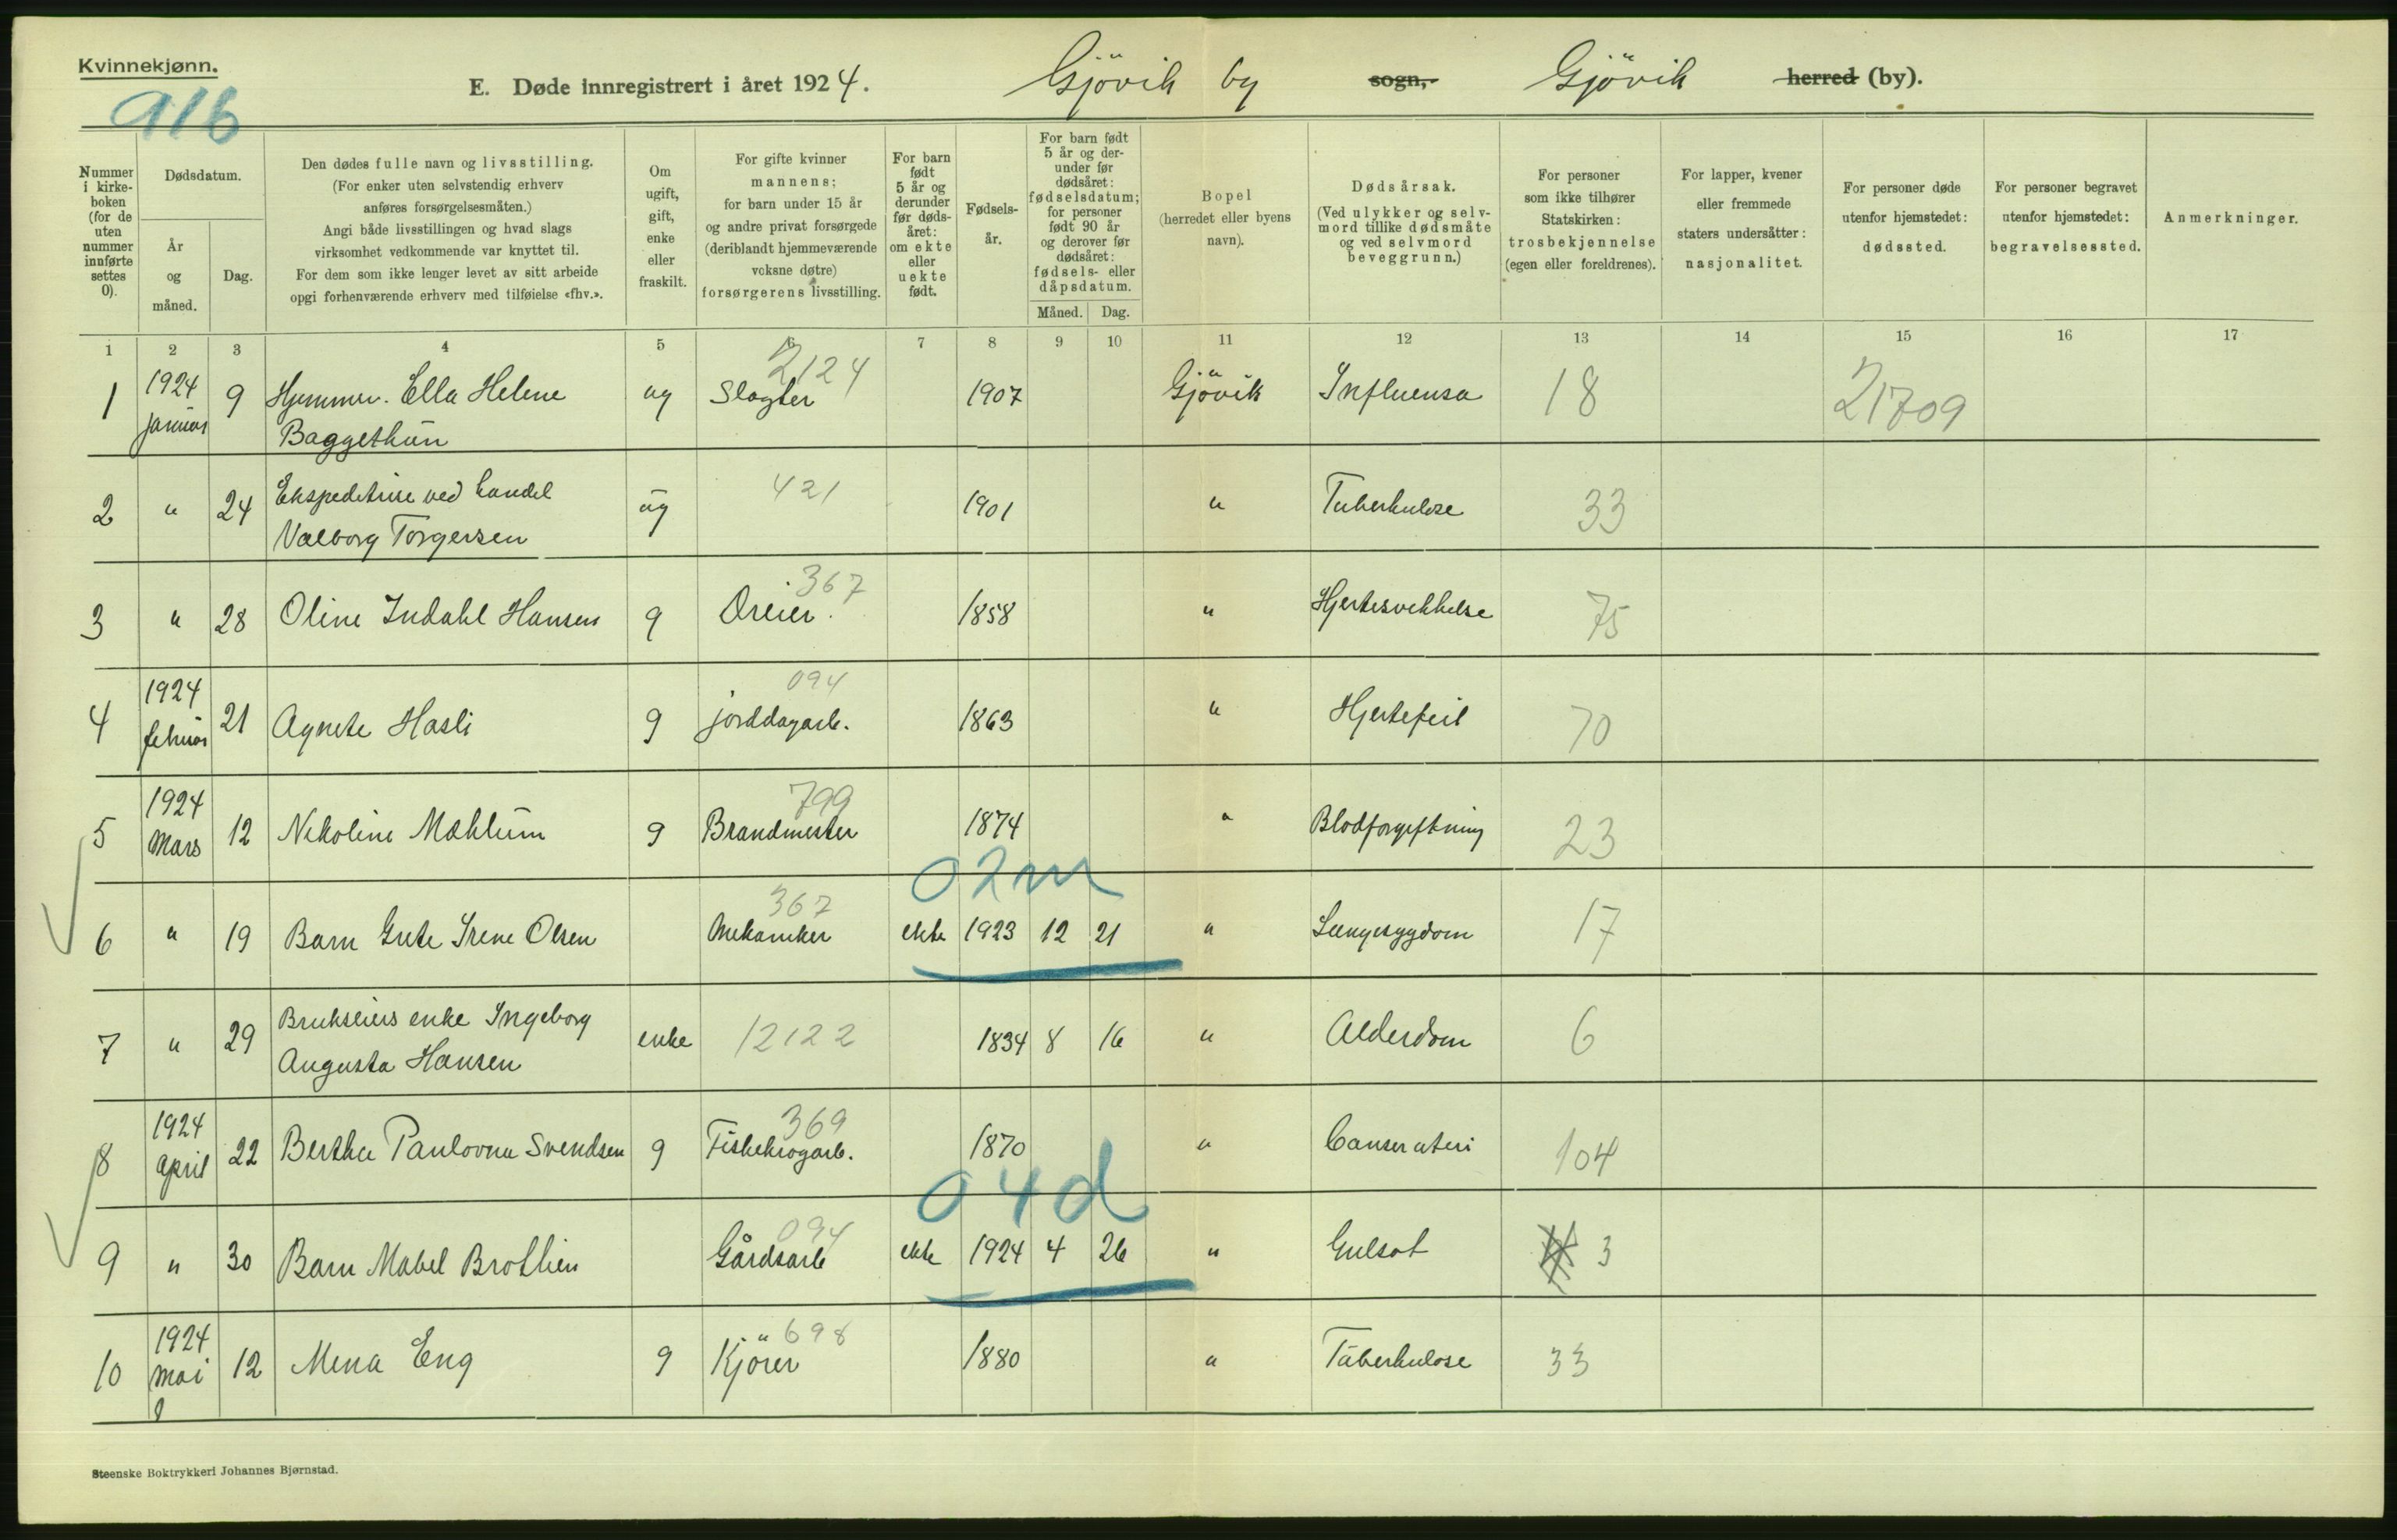 Kvinnekjønn.
916
E. Døde innregistrert i året 1924. Gjövik by sogn, Gjövik herred (by).
Nummer i kirkeboken (for de uten nummer innførte settes 0).
Dødsdatum.
År og måned.
Dag.
Den dødes fulle navn og livsstilling.
(For enker uten selvstendig erhverv
anføres forsørgelsesmåten.)
Angi både livsstillingen og hvad slags
virksomhet vedkommende var knyttet til.
For dem som ikke lenger levet av sitt arbeide
opgi forhenværende erhverv med tilføielse «fhv.».
Om ugift, gift, enke eller fraskilt.
For gifte kvinner
mannens;
for barn under 15 år
og andre privat forsørgede
(deriblandt hjemmeværende
voksne døtre)
forsørgerens livsstilling.
For barn født 5 år og derunder før dødsåret: om ekte eller uekte født.
Fødselsår.
For barn født 5 år og derunder før dødsåret: fødselsdatum; for personer født 90 år og derover før dødsåret: fødsels- eller dåpsdatum.
Måned. Dag.
Bopel
(herredet eller byens
navn).
Dødsårsak.
(Ved ulykker og selvmord tillike dødsmåte og ved selvmord beveggrunn.)
For personer
som ikke tilhører
Statskirken:
trosbekjennelse
(egen eller foreldrenes).
For lapper, kvener
eller fremmede
staters undersåtter:
nasjonalitet.
For personer døde
utenfor hjemstedet:
dødssted.
For personer begravet
utenfor hjemstedet:
begravelsessted.
Anmerkninger.
1 2 3 4 5 6 7 8 9 10 11 12 13 14 15 16 17
2124
1 1924 januar 9 Hjemmev. Ella Helene Baggethun ug Slagter 1907 Gjövik Influensa 18 21709
2 " 24 Ekspeditrise ved handel Valborg Torgersen ug 421 1901 " Tuberkulose 33
367
3 " 28 Oline Indahl Hansen g Dreier. 1858 " Hjertesvekkelse 75
094
4 1924 februar 21 Agnete Hasli g jorddagarb. 1863 " Hjertefeil 70
799
5 1924 Mars 12 Nikoline Mæhlum g Brandmester 1874 " Blodforgiftning 23
02m
367
6 " 19 Barn Grete Irene Olsen Mekaniker ekte 1923 12 21 " Lungesygdom 17
7 " 29 Brukseiers enke Ingeborg Augusta Hansen enke 12122 1834 8 16 " Alderdom 6
369
8 1924 april 22 Bertha Paulovna Svendsen g Fiskekrogarb. 1870 " Cancer uteri 104
04d
094
9 " 30 Barn Mabel Brothen Gårdsarb ekte 1924 4 26 " Gulsot 3
698
10 1924 mai 12 Mina Eng g Kjörer 1880 " Tuberkulose 33
Steenske Boktrykkeri Johannes Bjørnstad.